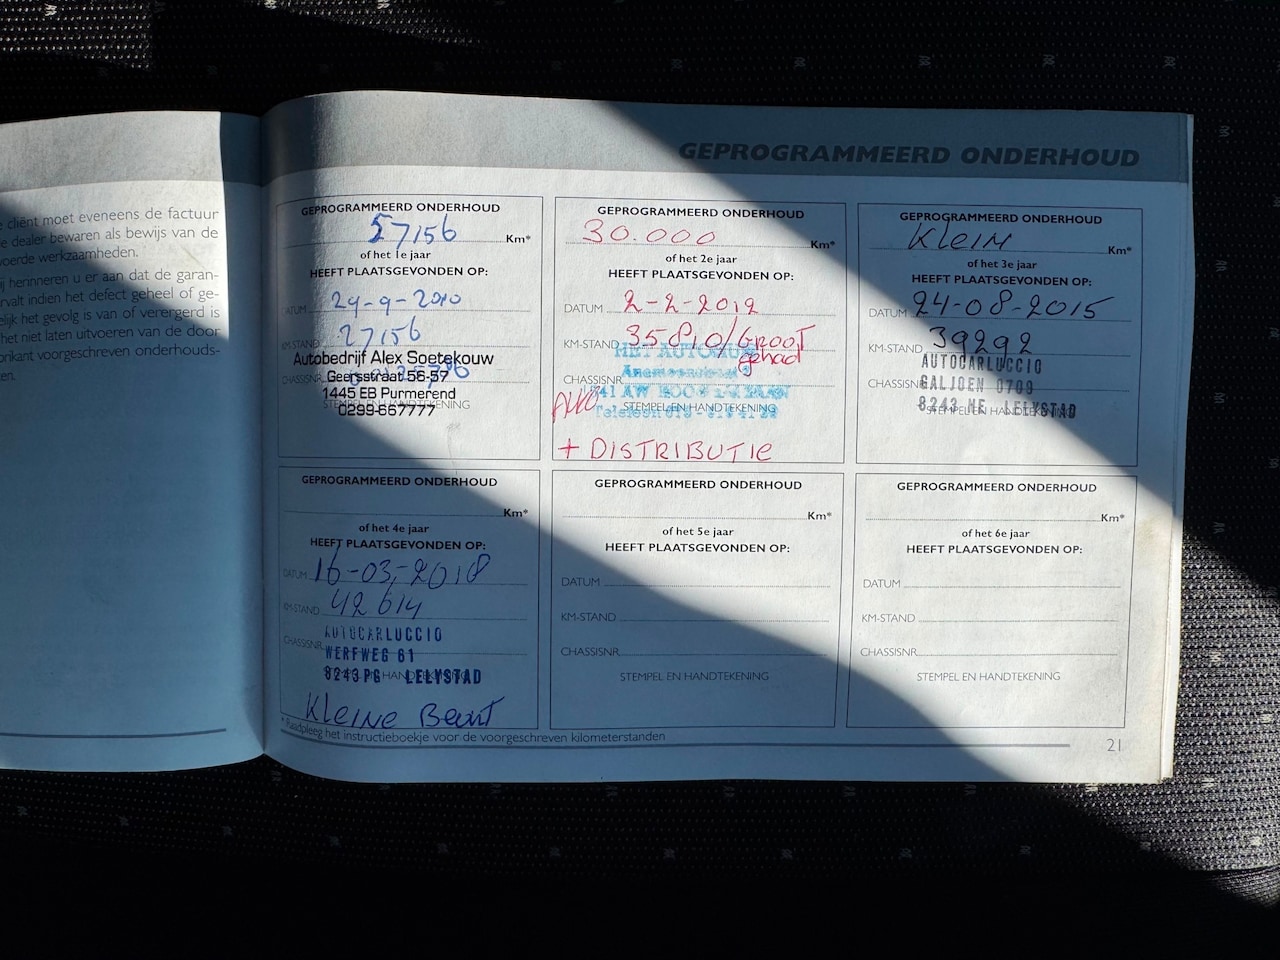 e cliënt moet eveneens de factuur
e dealer bewaren als bewijs van de
voerde werkzaamheden.
ij herinneren u er aan dat de garan-
rvalt indien het defect geheel of ge-
elijk het gevolg is van of verergerd is
het niet laten uitvoeren van de door
brikant voorgeschreven onderhouds-
en.
GEPROGRAMMEERD ONDERHOUD
GEPROGRAMMEERD ONDERHOUD
57156 Km*
of het 1e jaar
HEEFT PLAATSGEVONDEN OP:
DATUM 29-9-2010
KM-STAND 27156
Autobedrijf Alex Soetekouw
CHASSISNR.
Geersstraat 55-57
1445 EB Purmerend
STEMPEL EN HANDTEKENING
0299-667777
GEPROGRAMMEERD ONDERHOUD
30.000 Km*
of het 2e jaar
HEEFT PLAATSGEVONDEN OP:
DATUM 2-2-2012
KM-STAND 35810/GROOT
gehad
HET AUTOHUIS
CHASSISNR.
STEMPEL EN HANDTEKENING
+ DISTRIBUTIE
GEPROGRAMMEERD ONDERHOUD
KLEIN Km*
of het 3e jaar
HEEFT PLAATSGEVONDEN OP:
DATUM 24-08-2015
KM-STAND 39292
AUTOCARLUCCIO
CHASSISNR. GALJOEN 0709
8243 ME LELYSTAD
STEMPEL EN HANDTEKENING
GEPROGRAMMEERD ONDERHOUD
Km*
of het 4e jaar
HEEFT PLAATSGEVONDEN OP:
DATUM 16-03-2018
KM-STAND 42614
AUTOCARLUCCIO
CHASSISNR. WERFWEG 61
8243 PG LELYSTAD
STEMPEL EN HANDTEKENING
KLEINE Beurt
GEPROGRAMMEERD ONDERHOUD
Km*
of het 5e jaar
HEEFT PLAATSGEVONDEN OP:
DATUM
KM-STAND
CHASSISNR.
STEMPEL EN HANDTEKENING
GEPROGRAMMEERD ONDERHOUD
Km*
of het 6e jaar
HEEFT PLAATSGEVONDEN OP:
DATUM
KM-STAND
CHASSISNR.
STEMPEL EN HANDTEKENING
* Raadpleeg het instructieboekje voor de voorgeschreven kilometerstanden
21